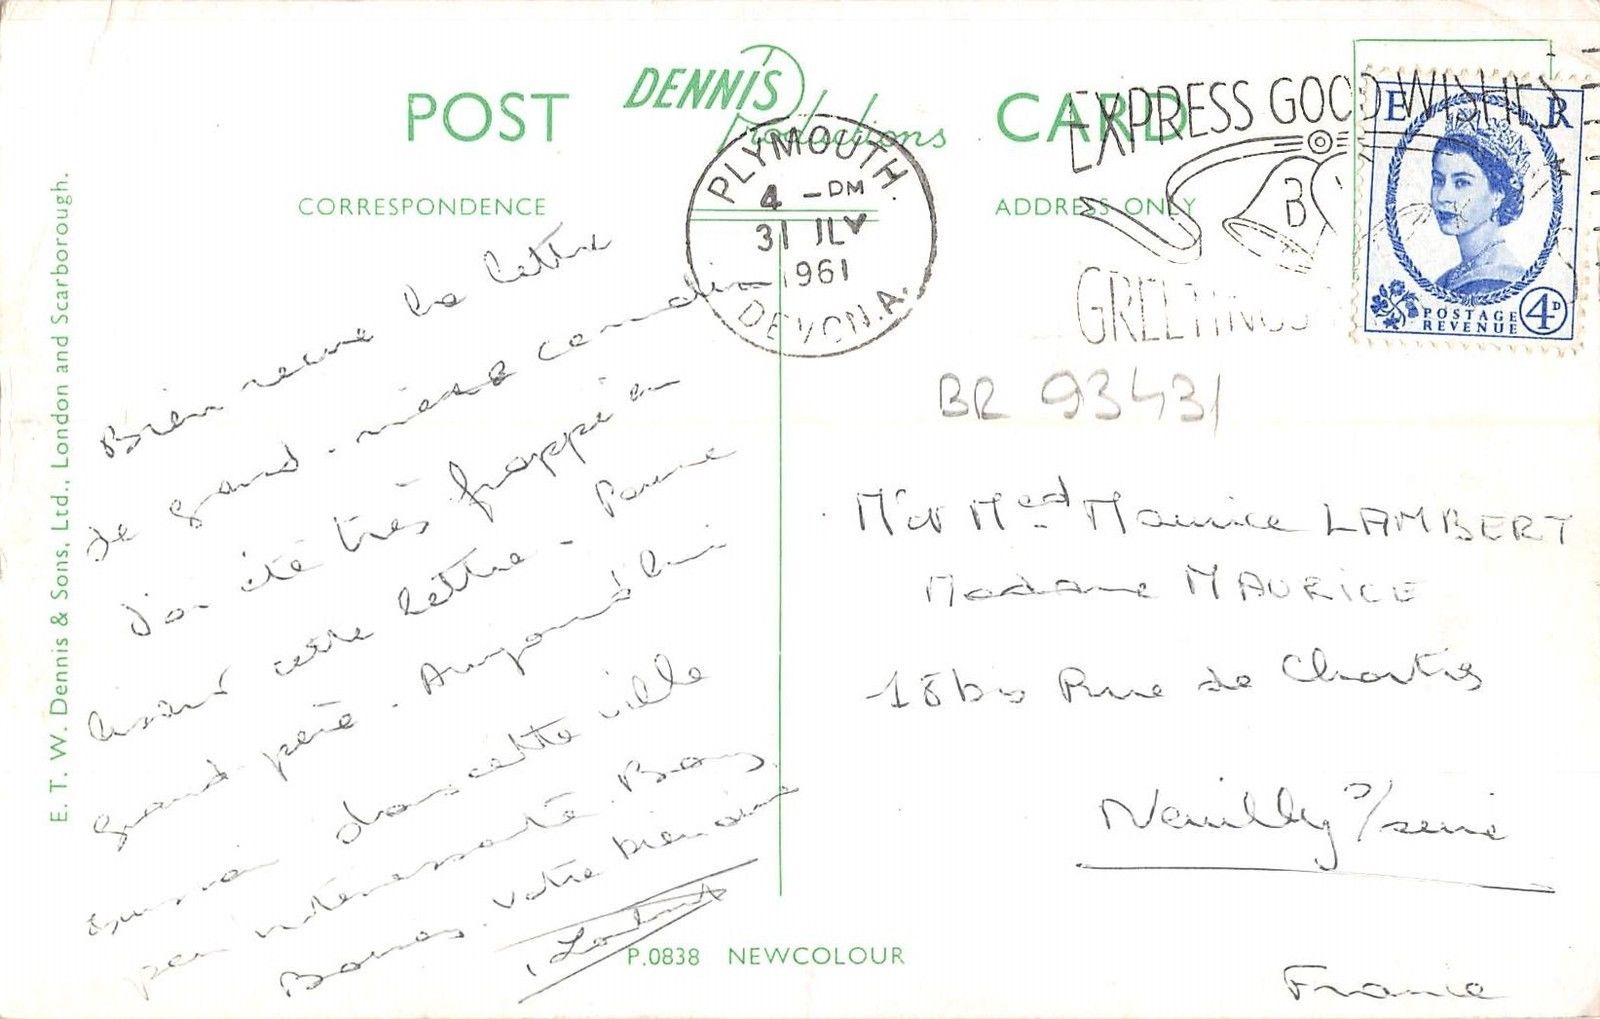 POST CARD
DENNIS
Productions
CORRESPONDENCE
ADDRESS ONLY
PLYMOUTH
4 - PM
31 JLY
1961
DEVON.A.
EXPRESS GOOD WISHES
B
GREETINGS
E R
POSTAGE
REVENUE
4D
BR 93431
Bien reçue la lettre
de grand-mère
J'ai été très frappé en
lisant cette lettre - Pauvre
grand-père. Aujourd'hui
suis dans cette ville
peu intéressante. Bons
Baisers. Votre bien aimé
M et Med Maurice LAMBERT
Madame MAURICE
18 bis Rue de Chartres
Neuilly s/seine
France
P.0838 NEWCOLOUR
E. T. W. Dennis & Sons, Ltd., London and Scarborough.